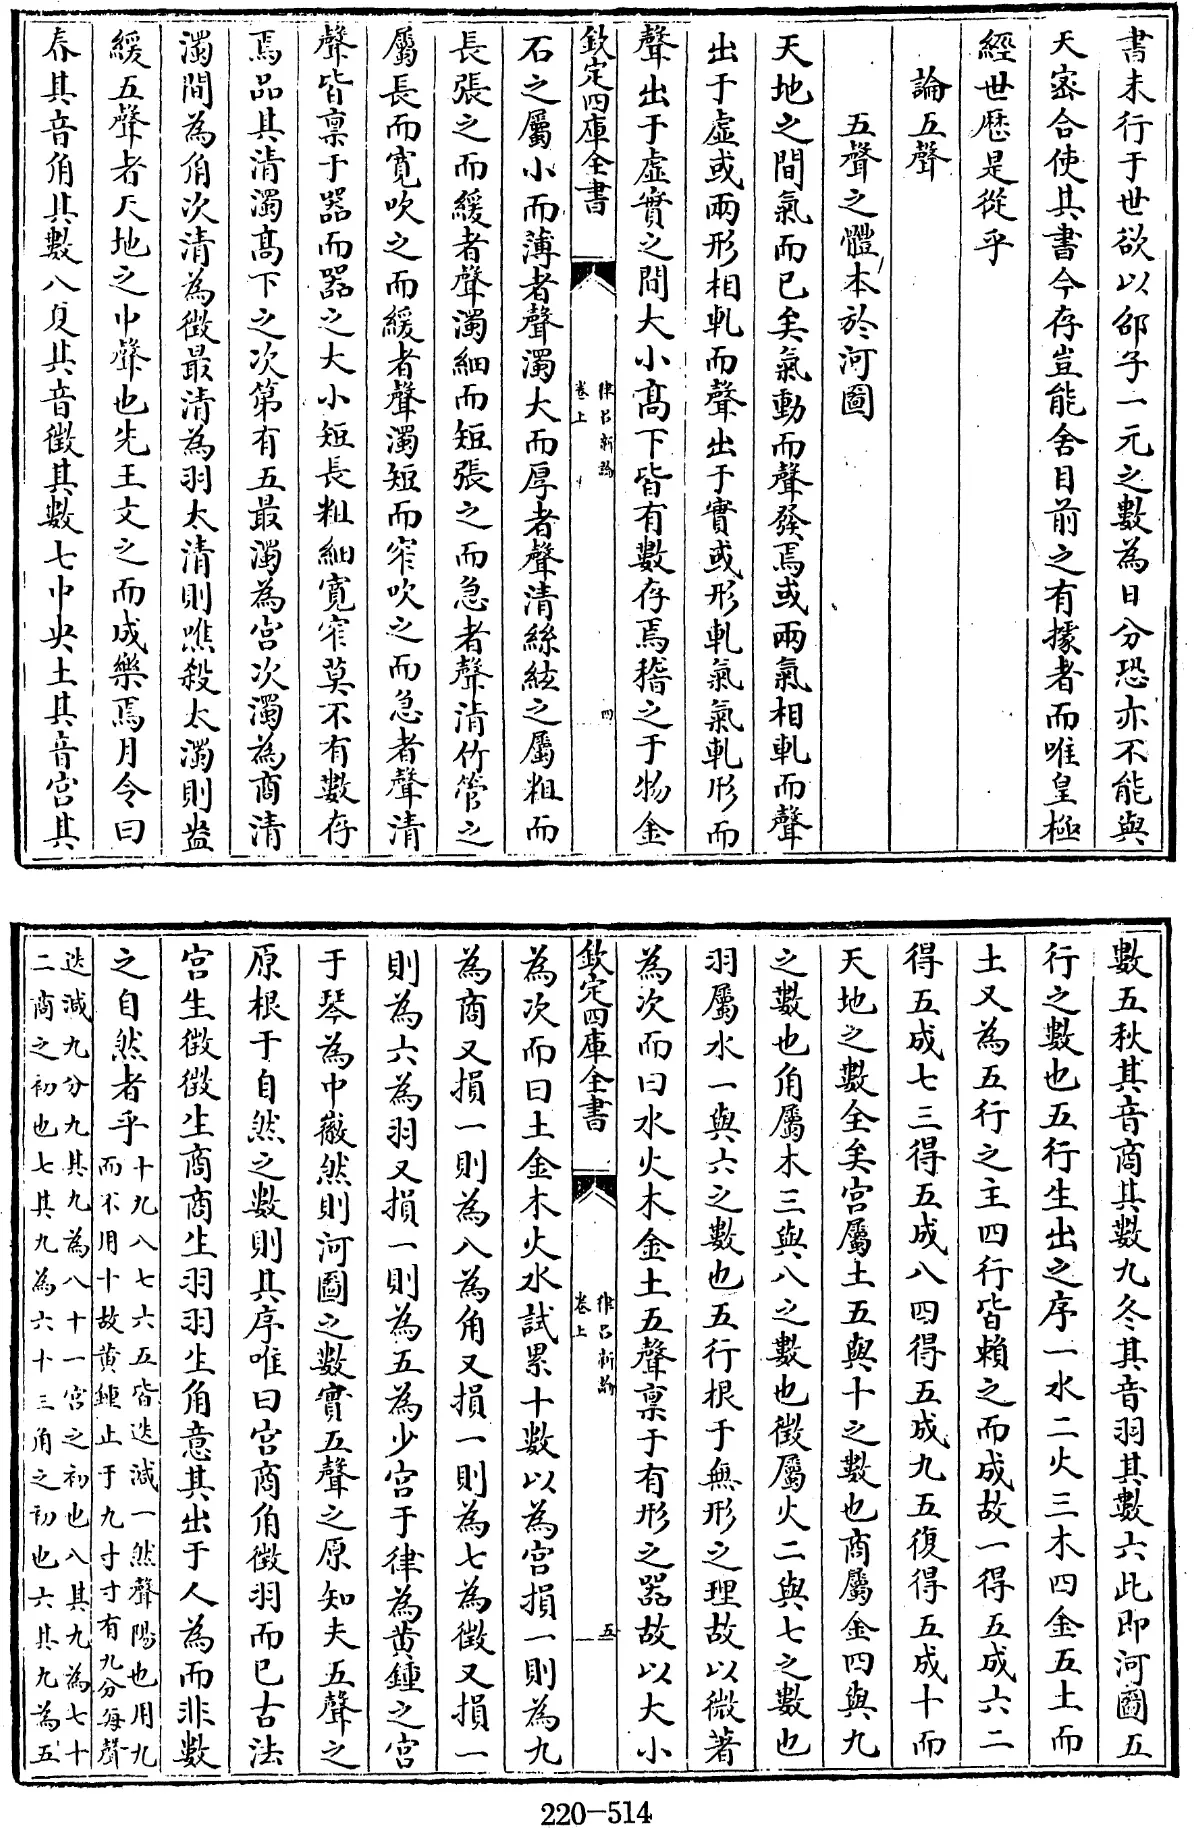 書未行于世欲以邵子一元之數為日分恐亦不能與
天密合使其書今存豈能舍目前之有據者而唯皇極
經世厯是從乎
論五聲
五聲之體本於河圖
天地之間氣而已矣氣動而聲發焉或兩氣相軋而聲
出于虛或兩形相軋而聲出于實或形軋氣氣軋形而
聲出于虛實之間大小髙下皆有數存焉稽之于物金
欽定四庫全書
律呂新論
卷上
四
石之屬小而薄者聲濁大而厚者聲清絲絃之屬粗而
長張之而緩者聲濁細而短張之而急者聲清竹管之
屬長而寛吹之而緩者聲濁短而窄吹之而急者聲清
聲皆禀于器而器之大小短長粗細寛窄莫不有數存
焉品其清濁髙下之次第有五最濁為宫次濁為商清
濁間為角次清為徴最清為羽太清則噍殺太濁則㿽
緩五聲者天地之中聲也先王文之而成樂焉月令曰
春其音角其數八夏其音徴其數七中央土其音宫其
數五秋其音商其數九冬其音羽其數六此即河圖五
行之數也五行生出之序一水二火三木四金五土而
土又為五行之主四行皆賴之而成故一得五成六二
得五成七三得五成八四得五成九五復得五成十而
天地之數全矣宫屬土五與十之數也商屬金四與九
之數也角屬木三與八之數也徴屬火二與七之數也
羽屬水一與六之數也五行根于無形之理故以微著
為次而曰水火木金土五聲禀于有形之器故以大小
欽定四庫全書
律呂新論
卷上
五
為次而曰土金木火水試累十數以為宫損一則為九
為商又損一則為八為角又損一則為七為徴又損一
則為六為羽又損一則為五為少宫于律為黄鍾之宫
于琴為中徽然則河圖之數實五聲之原知夫五聲之
原根于自然之數則其序唯曰宫商角徴羽而已古法
宫生徴徴生商商生羽羽生角意其出于人為而非數
之自然者乎十九八七六五皆迭減一然聲陽也用九
而不用十故黄鍾止于九寸寸有九分每聲
迭減九分九其九為八十一宫之初也八其九為七十
二商之初也七其九為六十三角之初也六其九為五
220-514